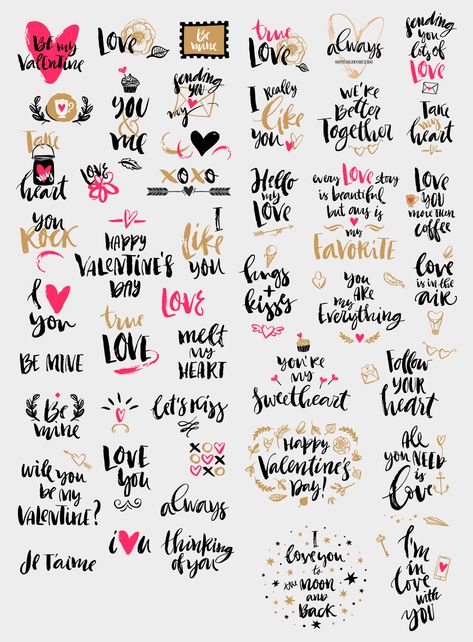 Be my
Valentine
Love
Be
mine
You
&
me
sending
you
my
Take
heart
Love
XOXO
you
ROCK
HAPPY
VALENTINE'S
DAY
I
Like
you
I
you
true
LOVE
LOVE
melt
MY
HEART
BE MINE
Be
mine
Let's Kiss
will you
be my
VALENTINE?
LOVE
you
XO
always
Je T'aime
i u
thinking
of you
true
Love
always
HAPPY VALENTINE'S DAY
sending
you
lots of
Love
I Really
Like
you
We're
Better
Together
Take
my
heart
Hello
my
Love
every Love story
is beautiful
but ours is
my
FAVORITE
Love
you
more than
coffee
hugs
+
kisses
you
ARE
my
Everything
love
is in the
air
you're
my
Sweetheart
Follow
YOUR
heart
Happy
Valentine's
Day!
All
you NEED
is
Love
I
love you
to
the MOON
and
BACK
I'm
in
Love
with
YOU